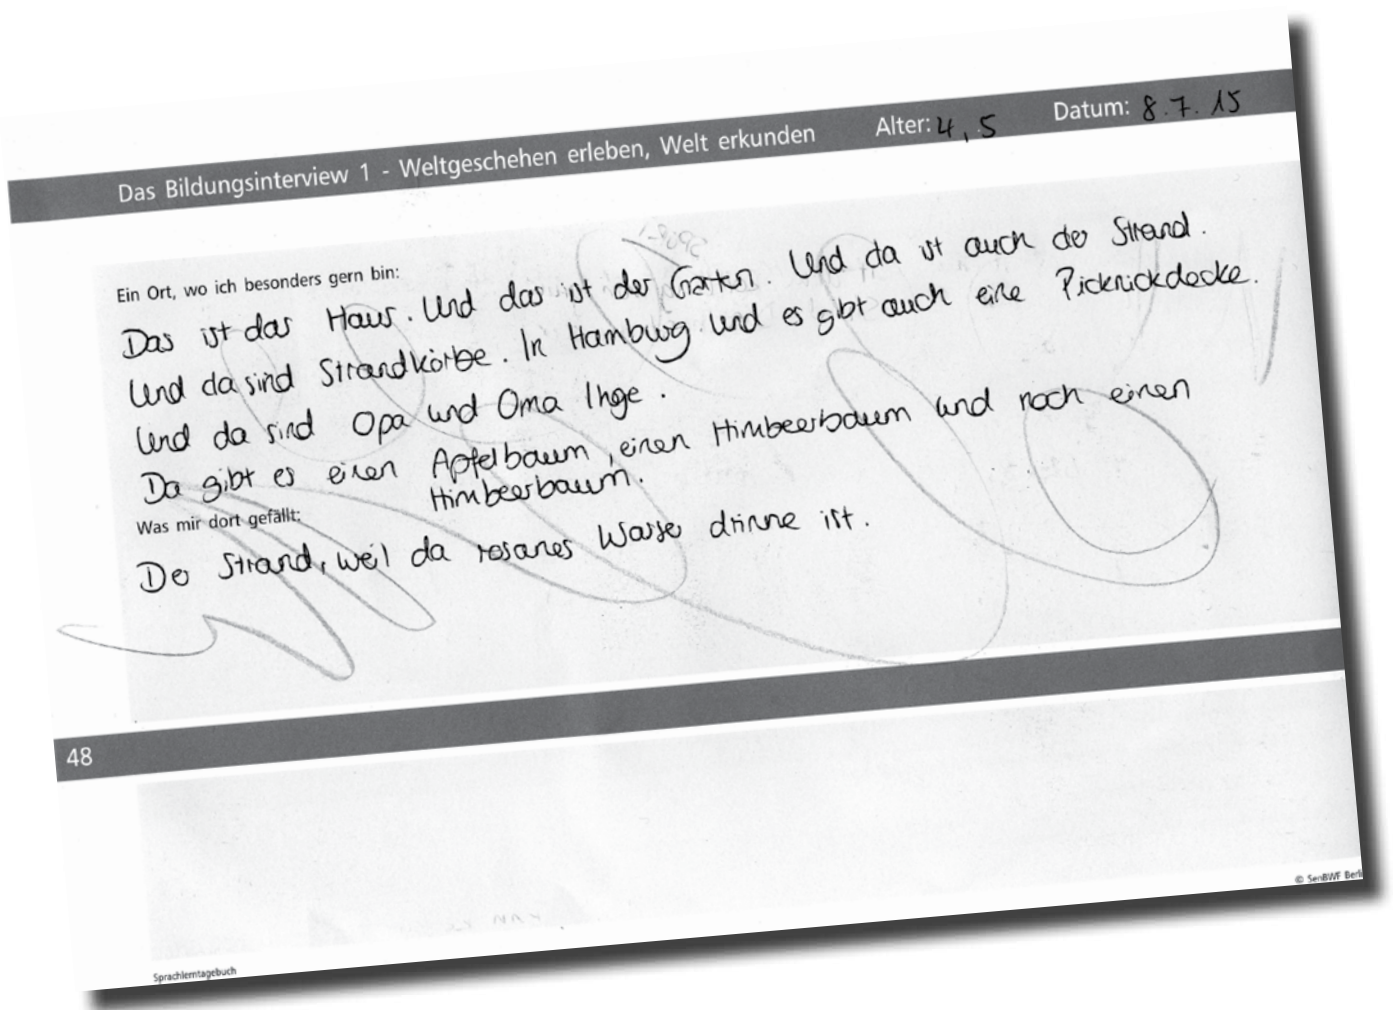 Das Bildungsinterview 1 - Weltgeschehen erleben, Welt erkunden Alter: 4,5 Datum: 8.7.15
Ein Ort, wo ich besonders gern bin:
Das ist das Haus. Und das ist der Garten. Und da ist auch der Strand.
Und da sind Strandkörbe. In Hamburg und es gibt auch eine Picknickdecke.
Und da sind Opa und Oma Inge.
Da gibt es einen Apfelbaum, einen Himbeerbaum und noch einen
Himbeerbaum.
Was mir dort gefällt:
Der Strand, weil da rosanes Wasser drinne ist.
48
© SenBWF Berli
Sprachlerntagebuch